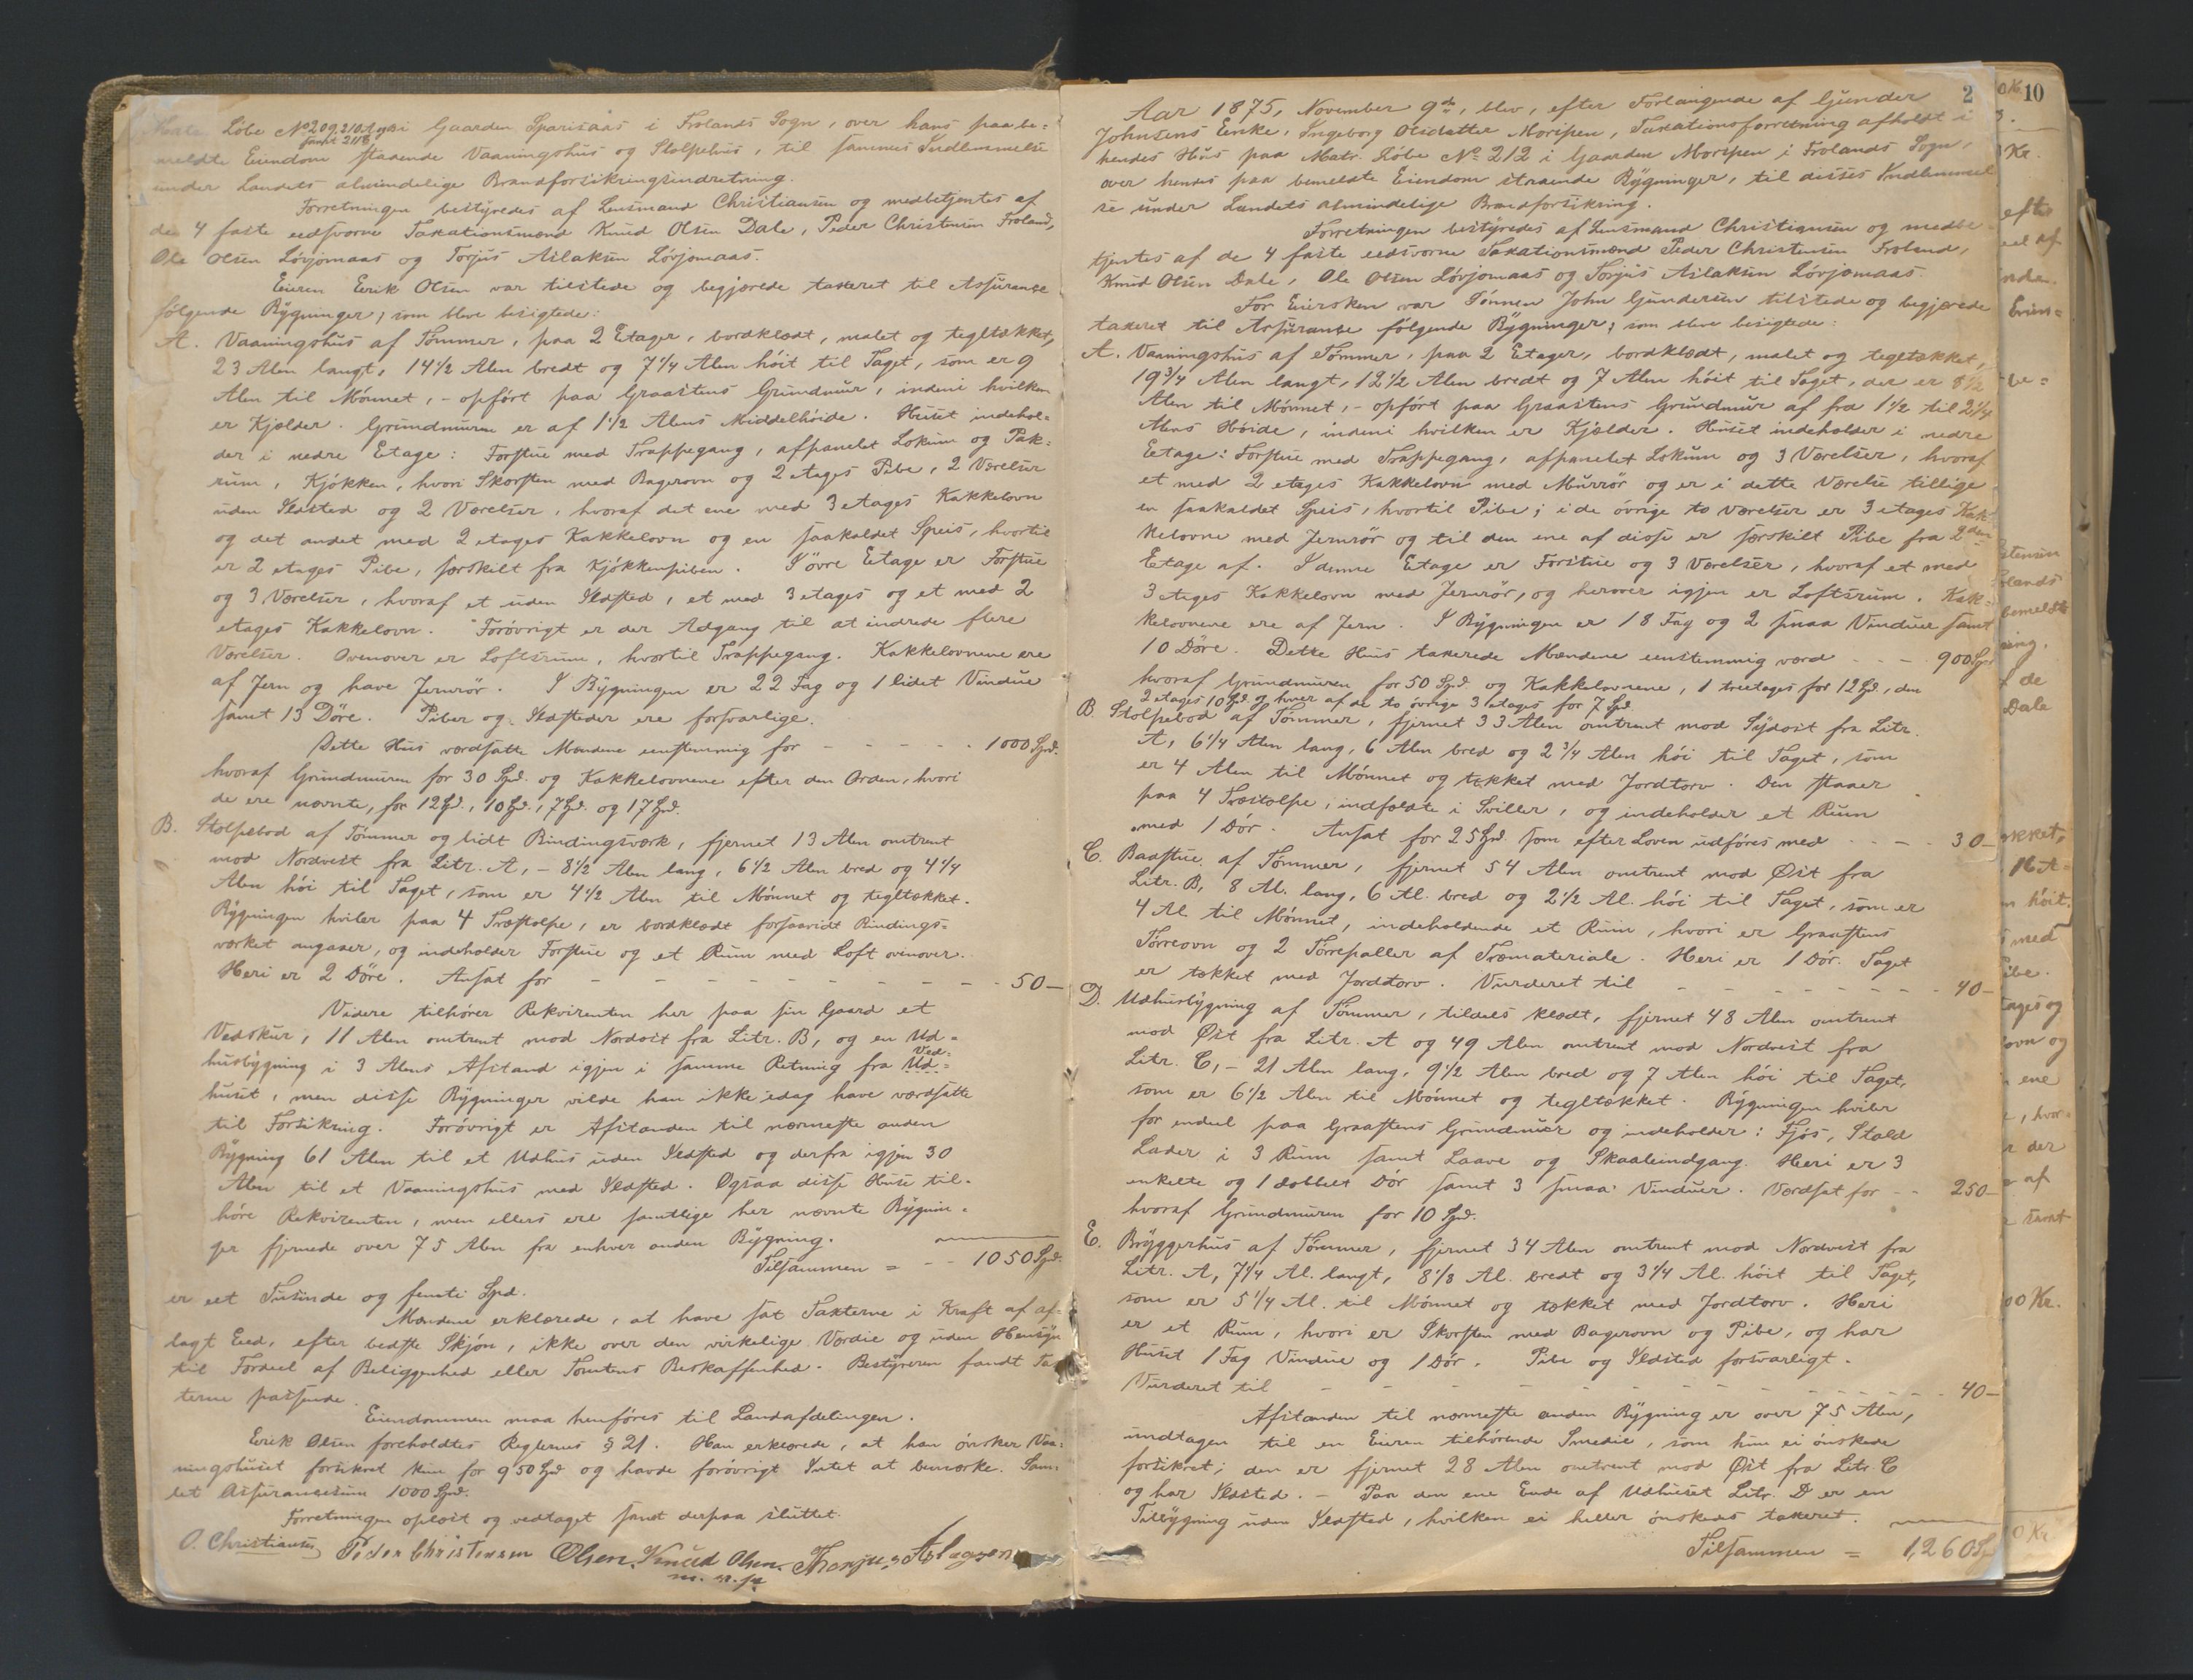 Løbe No 209, 210, i Gaarden Sparisaas i Frolands Sogn, over hans paa be=
samt 211b
meldte Eiendom staaende Vaaningshus og Stolpehus, til sammes Indlemmelse
under Landets almindelige Brandforsikringsindretning.
Forretningen bestyredes af Lensmand Christiansen og medbetjentes af
de 4 faste eedsvorne Taxationsmænd Knud Olsen Dale, Peder Christensen Froland,
Ole Olsen Løvjomaas og Torjus Aslaksen Løvjomaas.
Eieren Eerik Olsen var tilstede og begjærede taxeret til Assurance
følgende Bygninger, som bleve besigtede:
A. Vaaningshus af Tømmer, paa 2 Etager, bordklædt, malet og tegltækket,
23 Alen langt, 14 1/2 Alen bredt og 7 1/4 Alen høit til Taget, som er 9
Alen til Mønnet, - opført paa Graastens Grundmuur, indeni hvilken
er Kjælder. Grundmuren er af 1 1/2 Alens Middelhøide. Huset indehol=
der i nedre Etage: Forstue med Trappegang, afpanelet Lokum og Pak=
rum, Kjøkken, hvori Skorsten med Bagerovn og 2 etages Pibe, 2 Værelser
uden Ildsted og 2 Værelser, hvoraf det ene med 3 etages Kakkelovn
og det andet med 2 etages Kakkelovn og en saakaldet Speis, hvortil
er 2 etages Pibe, særskilt fra Kjøkkenpiben. I øvre Etage er Forstue
og 3 Værelser, hvoraf et uden Ildsted, et med 3 etages og et med 2
etages Kakkelovn. Forøvrigt er der Adgang til at indrede flere
Værelser. Ovenover er Loftsrum, hvortil Trappegang. Kakkelovnene ere
af Jern og have Jernrør. I Bygningen er 22 Fag og 1 lidet Vindue
samt 13 Døre. Piber og Ildsteder ere forsvarlige.
Dette Hus værdsatte Mændene eenstemmig for - - - - - 1000 Spd.
hvoraf Grundmuren for 30 Spd. og Kakkelovnene efter den Orden, hvori
de ere nævnte, for 12 Spd., 10 Spd., 7 Spd. og 17 Spd.
B. Stolpebod af Tømmer og lidt Bindingsværk, fjernet 13 Alen omtrent
mod Nordvest fra Litr. A, - 8 1/2 Alen lang, 6 1/2 Alen bred og 4 1/4
Alen høi til Taget, som er 4 1/2 Alen til Mønnet og tegltækket.
Bygningen hviler paa 4 Træstolpe, er bordklædt forsaavidt Bindings=
værket angaaer, og indeholder Forstue og et Rum med Loft ovenover.
Heri er 2 Døre. Ansat for - - - - - - - - - - 50 -
Videre tilhører Rekvirenten her paa sin Gaard et
Vedskur, 11 Alen omtrent mod Nordost fra Litr. B, og en Ud=
husbygning i 3 Alens Afstand igjen i samme Retning fra Ud=
Ved=
huset, men disse Bygninger vilde han ikke idag have værdsatte
til Forsikring. Forøvrigt er Afstanden til nærmeste anden
Bygning 61 Alen til et Udhus uden Ildsted og derfra igjen 30
Alen til et Vaaningshus med Ildsted. Ogsaa disse Huse til=
høre Rekvirenten, men ellers ere samtlige her nævnte Bygnin=
ger fjernede over 75 Alen fra enhver anden Bygning.
Tilsammen = - - 1050 Spd.
er eet Tusinde og femti Spd.
Mændene erklærede, at have sat Taxterne i Kraft af af=
lagt Eed, efter bedste Skjøn, ikke over den virkelige Værdie og uden Hensyn
til Fordeel af Beliggenhed eller Tomtens Beskaffenhed. Bestyreren fandt Tax
terne passende.
Eiendommen maa henføres til Landafdelingen.
Eerik Olsen foreholdtes Reglernes § 21. Han erklærede, at han ønsker Vaa=
ningshuset forsikret kun for 950 Spd. og havde forøvrigt Intet at bemærke. Sam=
let Assurancesum 1000 Spd.
Forretningen oplæst og vedtaget samt derpaa sluttet.
O. Christiansen Peder Christensen Olsen. Knud Olsen. Thorjus Aslagsen
m. p. P.
2
Aar 1875, November 9de, blev, efter Forlangende af Gunder
Johnsens Enke, Ingeborg Olsdatter Moripen, Taxationsforretning afholdt i
hendes Hus paa Matr. Løbe No 212 i Gaarden Moripen i Frolands Sogn,
over hendes paa bemeldte Eiendom staaende Bygninger, til disses Indlemmel
se under Landets almindelige Brandforsikring.
Forretningen bestyredes af Lensmand Christiansen og medbe=
tjentes af de 4 faste eedsvorne Taxationsmænd Peder Christensen Froland,
Knud Olsen Dale, Ole Olsen Løvjomaas og Torjus Aslaksen Løvjomaas.
For Eiersken var Sønnen John Gundersen tilstede og begjærede
taxeret til Assurance følgende Bygninger, som bleve besigtede:
A. Vaaningshus af Tømmer, paa 2 Etager, bordklædt, malet og tegltækket,
19 3/4 Alen langt, 12 1/2 Alen bredt og 7 Alen høit til Taget, der er 8 1/2
Alen til Mønnet, - opført paa Graastens Grundmuur af fra 1 1/2 til 2 1/4
Alens Høide, indeni hvilken er Kjælder. Huset indeholder i nedre
Eetage: Forstue med Trappegang, afpanelet Lokum og 3 Værelser, hvoraf
et med 2 etages Kakkelovn med Muurrør og er i dette Værelse tillige
en saakaldet Speis, hvortil Pibe; i de øvrige to Værelser er 3 etages Kak=
kelovne med Jernrør og til den ene af disse er særskilt Pibe fra 2den
Etage af. I denne Etage er Forstue og 3 Værelser, hvoraf et med
3 etages Kakkelovn med Jernrør, og herover igjen er Loftsrum. Kak=
kelovnene ere af Jern. I Bygningen er 18 Fag og 2 smaa Vinduer samt
10 Døre. Dette Hus taxerede Mændene eenstemmig værd - - - 900 Spd
hvoraf Grundmuren for 50 Spd. og Kakkelovnene, 1 treetages for 12 Spd., den
2 etages 10 Spd. og hver af de to øvrige 3 etages for 7 Spd.
B. Stolpebod af Tømmer, fjernet 33 Alen omtrent mod Sydost fra Litr.
A, 6 1/4 Alen lang, 6 Alen bred og 2 3/4 Alen høi til Taget, som
er 4 Alen til Mønnet og tækket med Jordtorv. Den staaer
paa 4 Træstolpe, indfældte i Sviller, og indeholder et Rum
med 1 Dør. Ansat for 25 Spd. som efter Loven udføres med - - - 30 -
C. Badstue af Tømmer, fjernet 54 Alen omtrent mod Øst fra
Litr. B, 8 Al. lang, 6 Al. bred og 2 1/2 Al. høi til Taget, som er
4 Al. til Mønnet, indeholdende et Rum, hvori er Graastens
Tørreovn og 2 Tørrepaller af Træmateriale. Heri er 1 Dør. Taget
er tækket med Jordtorv. Vurderet til - - - - - - - 40 -
D. Udhusbygning af Tømmer, tildels klædt, fjernet 48 Alen omtrent
mod Øst fra Litr. A og 49 Alen omtrent mod Nordvest fra
Litr. C, - 21 Alen lang, 9 1/2 Alen bred og 7 Alen høi til Taget,
som er 6 1/2 Alen til Mønnet og tegltækket. Bygningen hviler
for endeel paa Graastens Grundmuur og indeholder: Fjøs, Stald
Lader i 3 Rum samt Laave og Skaaleindgang. Heri er 3
enkelte og 1 dobbelt Dør samt 3 smaa Vinduer. Værdsat for - - 250 -
hvoraf Grundmuren for 10 Spd.
E. Bryggerhus af Tømmer, fjernet 34 Alen omtrent mod Nordvest fra
Litr. A, 7 1/4 Al. langt, 8 1/8 Al. bredt og 3 1/4 Al. høit til Taget,
som er 5 1/4 Al. til Mønnet og tækket med Jordtorv. Heri
er et Rum, hvori er Skorsten med Bagerovn og Pibe, og har
Huset 1 Fag Vindue og 1 Dør. Pibe og Ildsted forsvarligt.
Vurderet til - - - - - - - - - - - 40 -
Afstanden til nærmeste anden Bygning er over 75 Alen,
undtagen til en Eieren tilhørende Smedie, som hun ei ønskede
forsikret; den er fjernet 28 Alen omtrent mod Øst fra Litr. C
og har Ildsted. - Paa den ene Ende af Udhuset Litr. D er en
Tilbygning uden Ildsted, hvilken ei heller ønskedes taxeret.
Tilsammen = 1,260 Sp
10
Kr.
efter
eel af
Eien=
be=
stensen
olands
bemeldte
ning.
de
Dale
ækket,
16 A=
n høit
med
ibe.
tages og
ovn og
ene
, hvor=
der
af
samt
00 Kr.
0 Kr